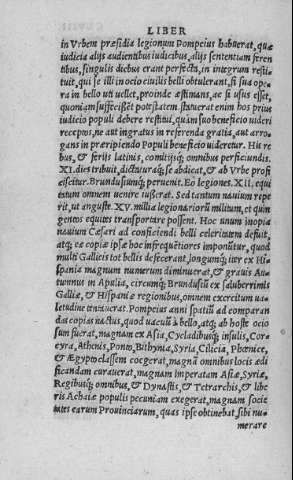 LIBER
in Vrbem præsidia legionum Pompeius habuerat, quæ
iudicia alijs audientibus iudicibus, alijs sententiam feren
tibus, singulis diebus erant perfecta, in integrum resti
tuit, qui se illi in ocio ciuilis belli obtulerant, si sua ope
ra in bello uti uellet, proinde æstimans, ac si usus esset,
quoniam suffecißent potestatem. statuerat enim hos prius
iudicio populi debere restitui, quàm suo beneficio uideri
receptos, ne aut ingratus in referenda gratia, aut arro
gans in præripiendo Populi beneficio uideretur. His re
bus, & ferijs latinis, comitijsq́; omnibus perficiundis.
XI. dies tribuit, dictaturaq́; se abdicat, & ab Vrbe profi
ciscitur. Brundusiumq́; peruenit. Eo legiones. XII. equi
tatum omnem uenire iusserat. Sed tantum nauium repe
rit, ut anguste. XV. millia legionariorũ militum, et quin
gentos equites transportare possent. Hoc unum inopia
nauium Cæsari ad conficiendi belli celeritatem defuit,
atq́; eæ copiæ ipsæ hoc infrequẽtiores imponũtur, quod
multi Gallicis tot bellis defecerant, longumq́; iter ex Hi
spania magnum numerum diminuerat, & grauis Au
tumnus in Apulia, circumq́; Brundusiũ ex saluberrimis
Galliæ, & Hispaniæ regionibus, omnem exercitum ua
letudine tentauerat. Pompeius anni spatiũ ad comparan
das copias nactus, quod uacuũ à bello, atq́; ab hoste ocio
sum fuerat, magnam ex Asia, Cycladibusq́; insulis, Cor
cyra, Athenis, Ponto, Bithynia, Syria, Cilicia, Phœnice,
& Aegypto classem coegerat, magnã omnibus locis ædi
ficandam curauerat, magnam imperatam Asiæ, Syriæ,
Regibusq́; omnibus, & Dynastis, & Tetrarchis, & libe
ris Achaiæ populis pecuniam exegerat, magnam socie
tates earum Prouinciarum, quas ipse obtinebat, sibi nu=
merare